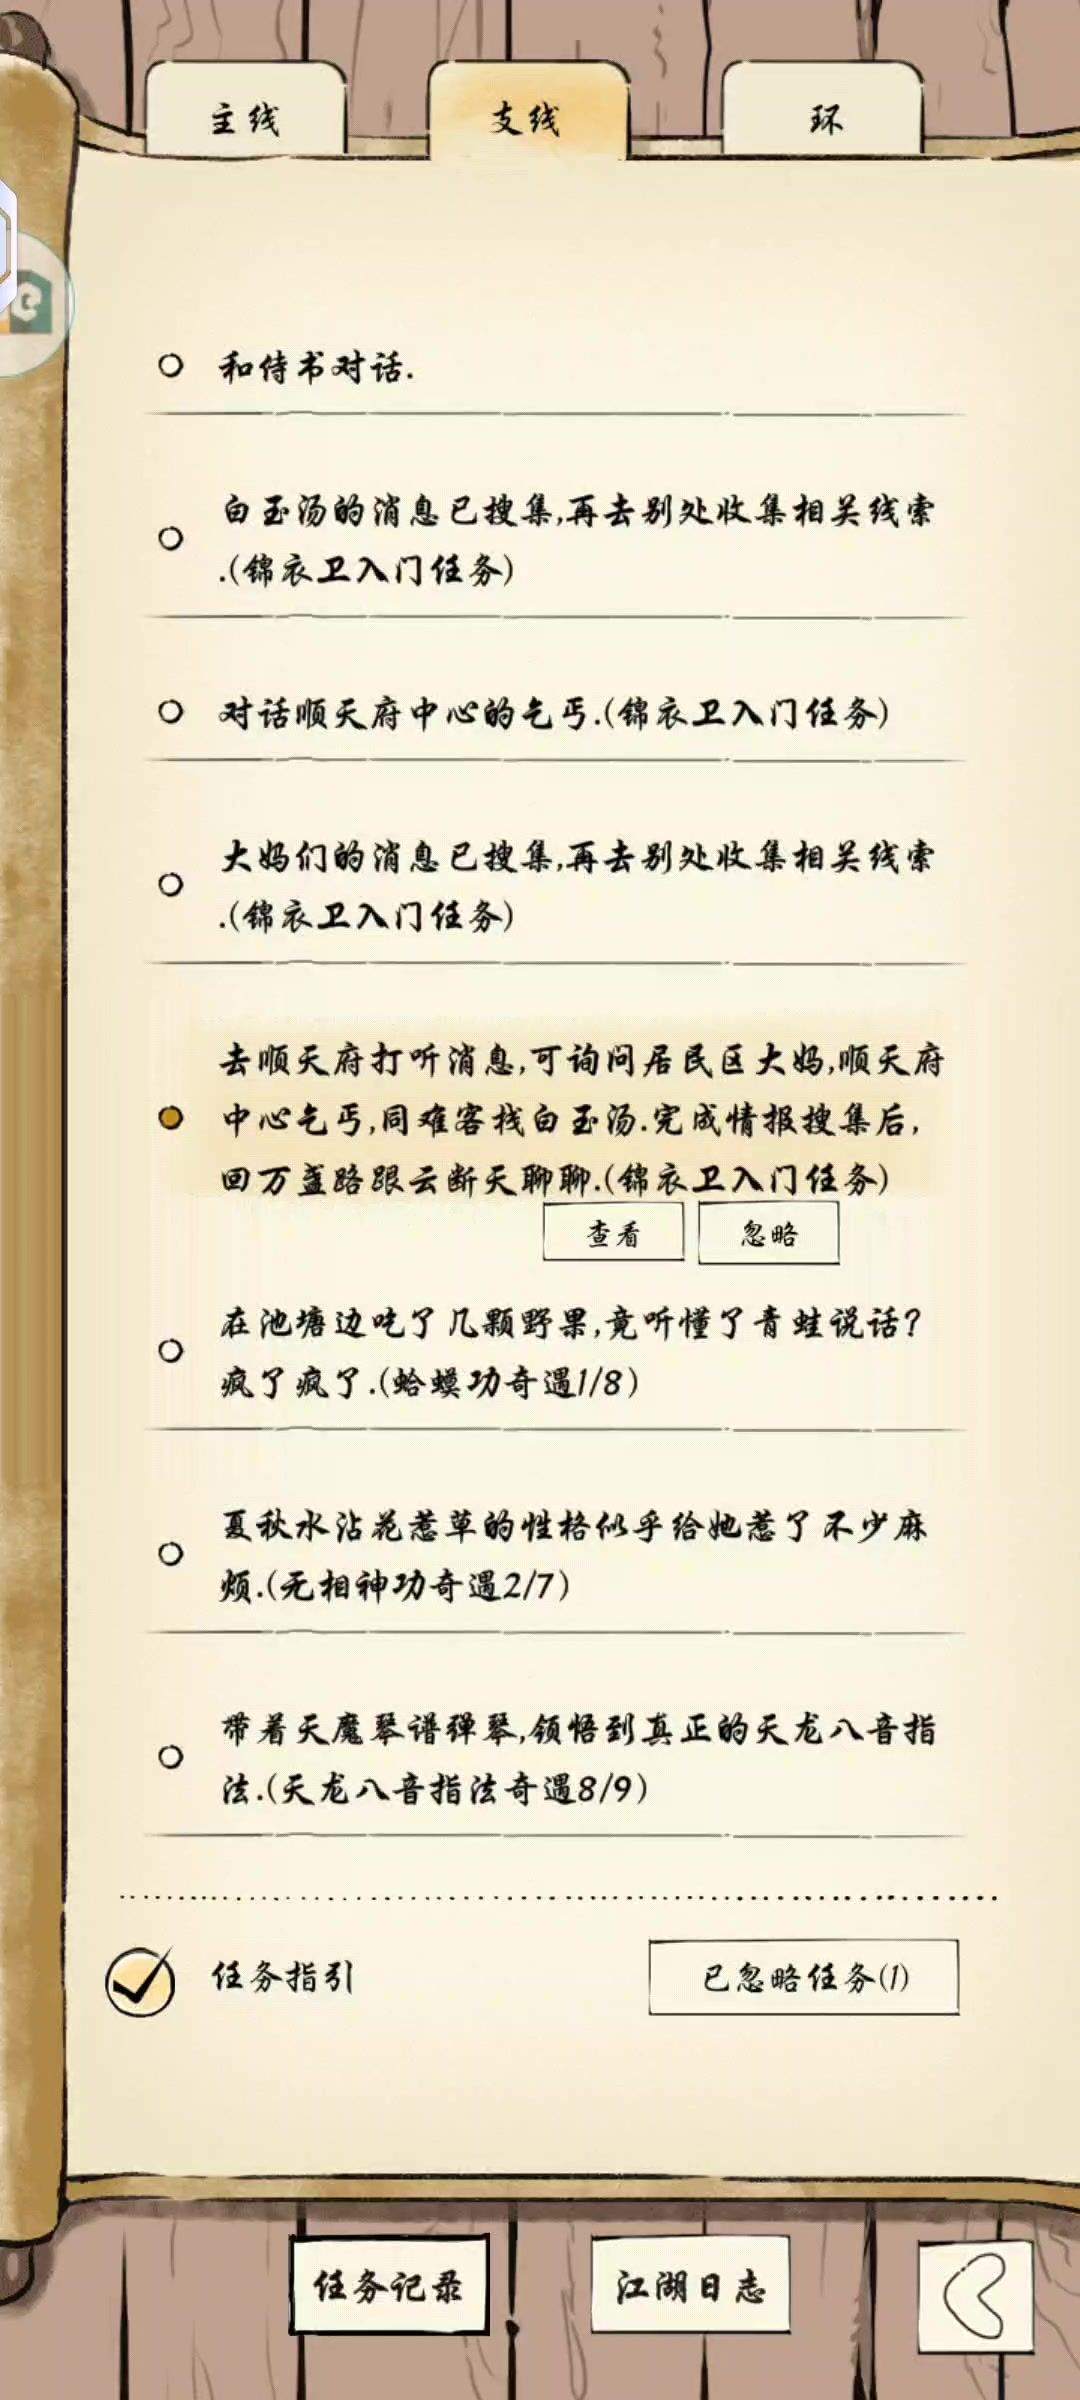 主线
支线
环
和侍书对话.
白玉汤的消息已搜集,再去别处收集相关线索
.(锦衣卫入门任务)
对话顺天府中心的乞丐.(锦衣卫入门任务)
大妈们的消息已搜集,再去别处收集相关线索
.(锦衣卫入门任务)
去顺天府打听消息,可询问居民区大妈,顺天府
中心乞丐,同难客栈白玉汤.完成情报搜集后,
回万盏路跟云断天聊聊.(锦衣卫入门任务)
查看
忽略
在池塘边吃了几颗野果,竟听懂了青蛙说话?
疯了疯了.(蛤蟆功奇遇1/8)
夏秋水沾花惹草的性格似乎给她惹了不少麻
烦.(无相神功奇遇2/7)
带着天魔琴谱弹琴,领悟到真正的天龙八音指
法.(天龙八音指法奇遇8/9)
任务指引
已忽略任务(1)
任务记录
江湖日志